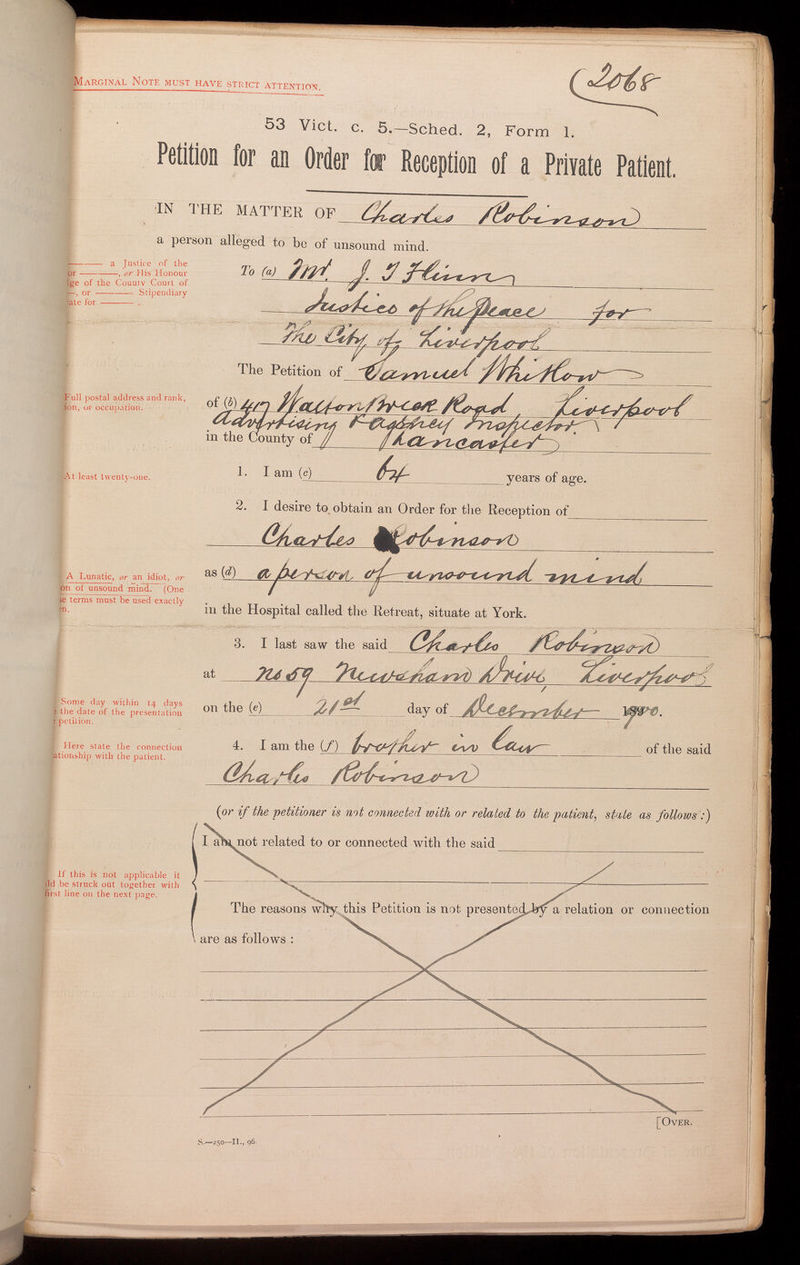 MARGINAL NOTE MUST HAVE STRICT ATTENTION.
2068
53 Vict. c. 5.—Sched. 2, Form 1.
Petition for an Order for Reception of a Private Patient.
IN THE MATTER OF Charles Robinson
a person alleged to be of unsound mind.
a Justice of the
or ———, or His Honour
ge of the County Court of
—, or ——— Stipendiary
ate for ——— .
To (a) Mr. J. Flinn
Justice of the peace for
The City of Liverpool
The Petition of Samuel Whitlow
Full postal address and rank,
ion, or occupation.
of (b) 47 Walton Breck Road Liverpool
Advertising Agency Inspector
in the County of Lancaster
At least twenty-one.
1. I am (c) 64 years of age.
2. I desire to obtain an Order for the Reception of
Charles Robinson
A Lunatic, or an idiot, or
on of unsound mind. (One
se terms must be used exactly
n.
as (d) a person of unsound mind
in the Hospital called the Retreat, situate at York.
3. I last saw the said Charles Robinson
at No 59 Newsham Drive, Liverpool
Some day within 14 days
the date of the presentation
petition.
on the (e) 21st day of December 1900.
Here state the connection
ationship with the patient.
4. I am the (f) brother in law of the said
Charles Robinson
(or if the petitioner is not connected with or related to the patient, state as follows:)
I am not related to or connected with the said
If this is not applicable it
ld be struck out together with
first line on the next page.
The reasons why this Petition is not presented by a relation or connection
are as follows :
[OVER.
S.—250—II., 96.